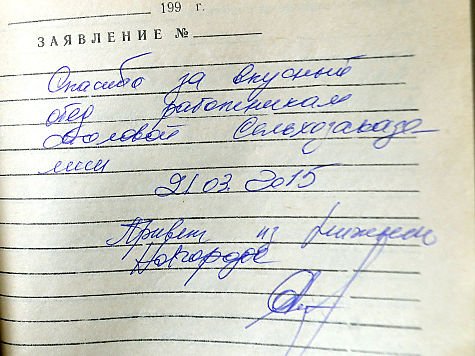 199 г.
ЗАЯВЛЕНИЕ №
Спасибо за вкусный
обед работникам
столовой Сельхозакаде
мии
21 03 2015
Привет из Нижнего
Новгорода